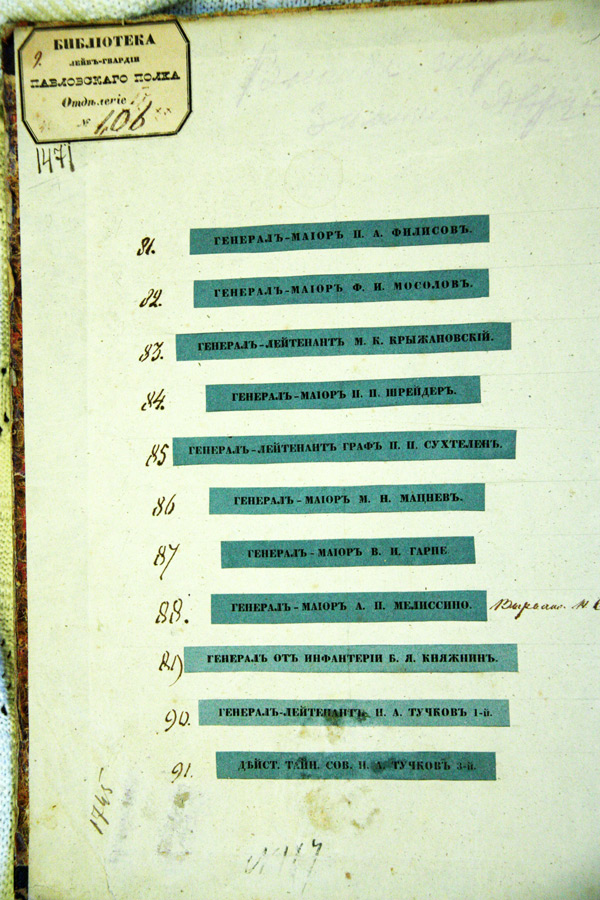 БИБЛІОТЕКА
ЛЕЙБЪ-ГВАРДІИ
ПАВЛОВСКАГО ПОЛКА
Отдѣленіе
№ 406
1471
81. ГЕНЕРАЛЪ-МАІОРЪ П. А. ФИЛИСОВЪ.
82. ГЕНЕРАЛЪ-МАІОРЪ Ф. И. МОСОЛОВЪ.
83. ГЕНЕРАЛЪ-ЛЕЙТЕНАНТЪ М. К. КРЫЖАНОВСКІЙ.
84. ГЕНЕРАЛЪ-МАІОРЪ П. П. ШРЕЙДЕРЪ.
85 ГЕНЕРАЛЪ-ЛЕЙТЕНАНТЪ ГРАФЪ П. П. СУХТЕЛЕНЪ.
86 ГЕНЕРАЛЪ-МАІОРЪ М. Н. МАЦНЕВЪ.
87 ГЕНЕРАЛЪ-МАІОРЪ В. И. ГАРПЕ.
88. ГЕНЕРАЛЪ-МАІОРЪ А. П. МЕЛИССИНО.
89 ГЕНЕРАЛЪ ОТЪ ИНФАНТЕРІИ Б. Я. КНЯЖНИНЪ.
90. ГЕНЕРАЛЪ-ЛЕЙТЕНАНТЪ Н. А. ТУЧКОВЪ 1-й.
91. ДѢЙСТ. ТАЙН. СОВ. П. А. ТУЧКОВЪ 3-й.
1745